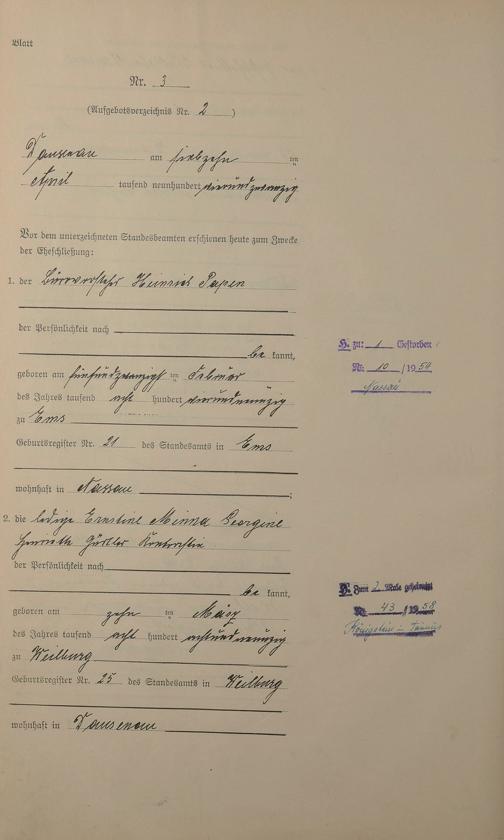 Blatt
Nr. 3
(Aufgebotsverzeichnis Nr. 2 )
Dausenau am siebzehn ten
April tausend neunhundert vierundzwanzig
Vor dem unterzeichneten Standesbeamten erschienen heute zum Zwecke
der Eheschließung:
1. der Bürovorsteher Heinrich Papen
der Persönlichkeit nach
be kannt,
geboren am fünfundzwanzigsten Februar
des Jahres tausend acht hundert vierundneunzig
zu Ems
Geburtsregister Nr. 21 des Standesamts in Ems
wohnhaft in Nassau ;
2. die ledige Ernstine Minna Georgine
Henriette Kontoristin
der Persönlichkeit nach
be kannt,
geboren am zehn ten März
des Jahres tausend acht hundert achtundneunzig
zu Weilburg
Geburtsregister Nr. 25 des Standesamts in Weilburg
wohnhaft in Dausenau
H. zu: 1 Gestorben
Nr. 10 /1954
Nassau
zum 2. Male geheiratet
Nr. 43 /1958
Königstein - Taunus